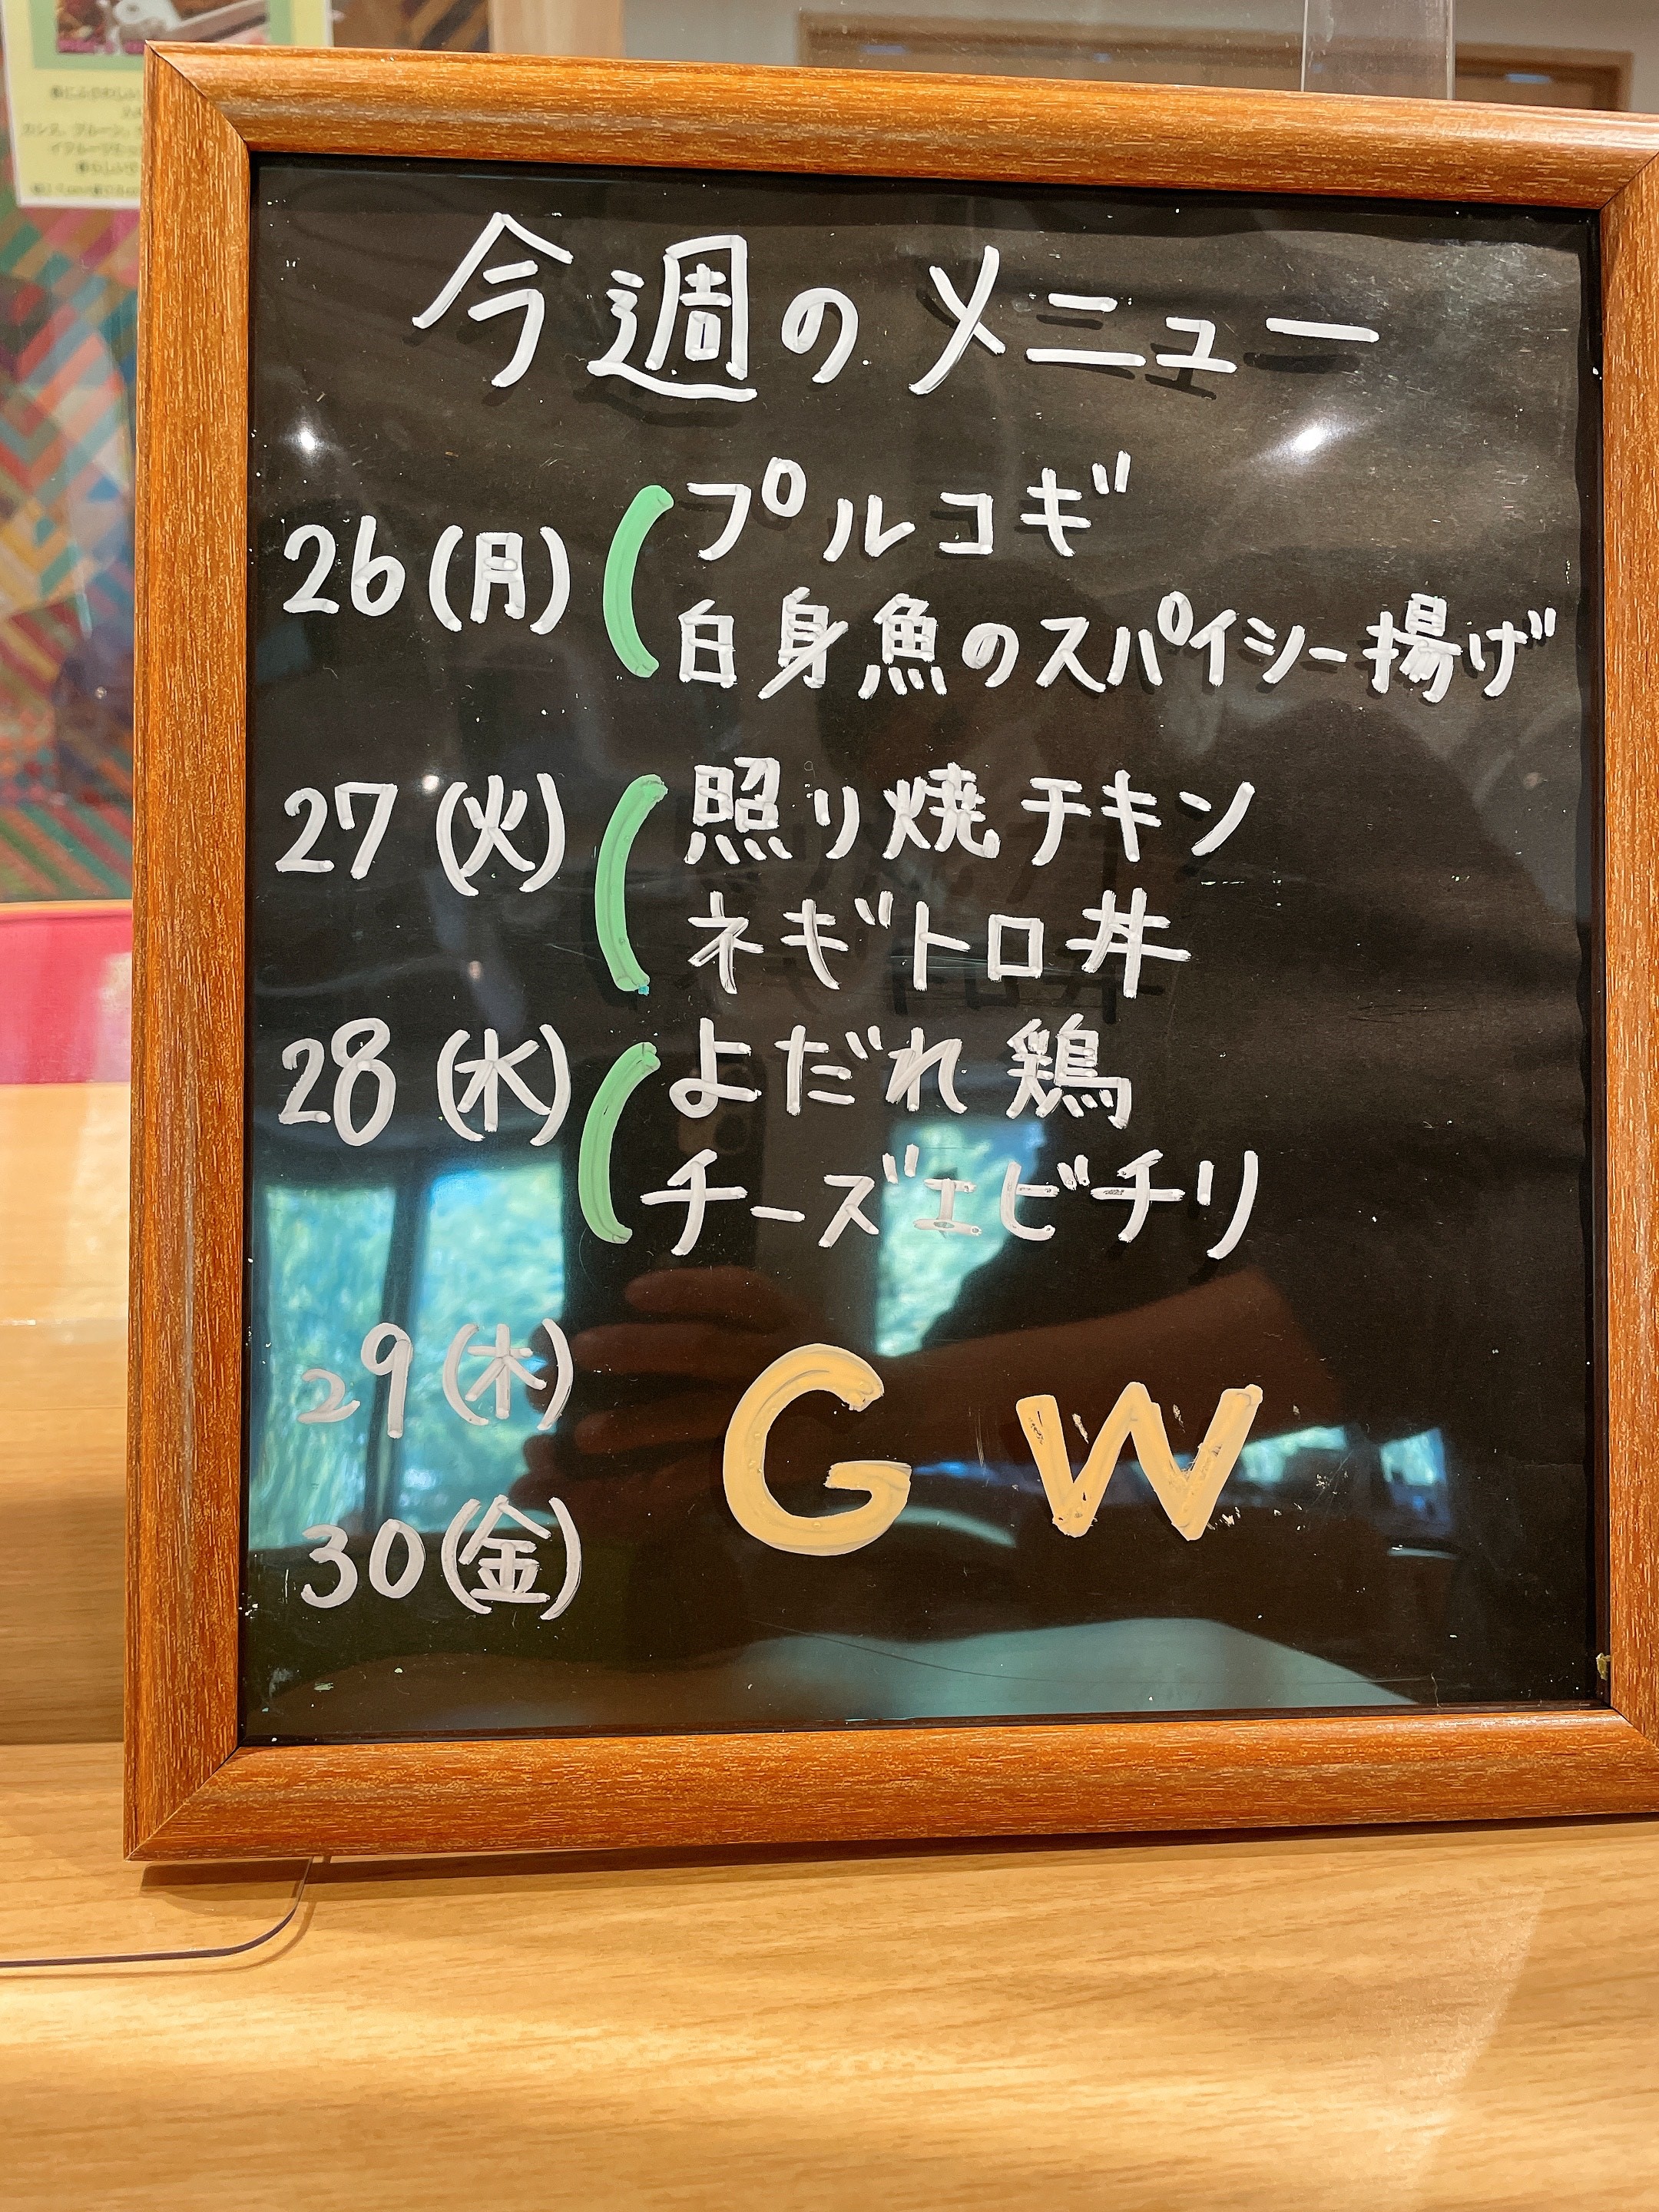 今週のメニュー
26(月)
プルコギ
白身魚のスパイシー揚げ
27(火)
照り焼チキン
ネギトロ丼
28(水)
よだれ鶏
チーズエビチリ
29(木)
GW
30(金)